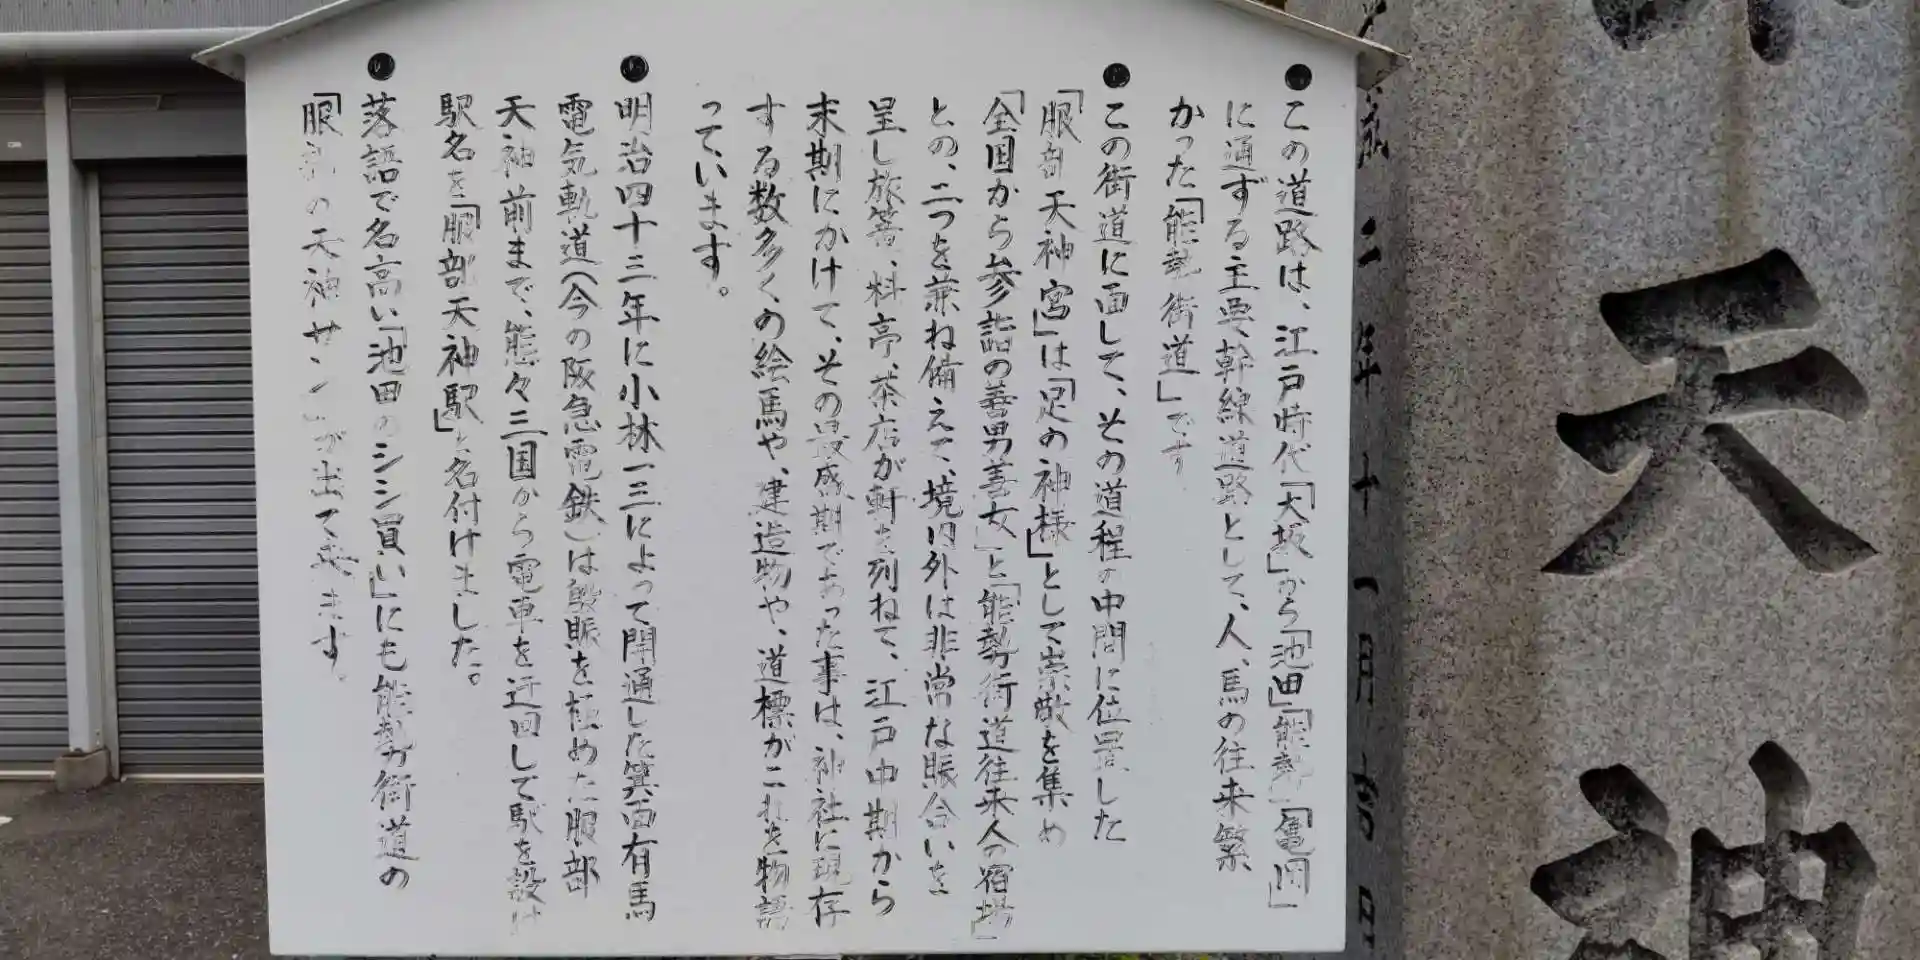 ●この道路は、江戸時代「大坂」から「池田」「能勢」「亀岡」
に通ずる主要幹線道路として、人、馬の往来繁
かった「能勢街道」です
●この街道に面して、その道程の中間に位置した
「服部天神宮」は「足の神様」として崇敬を集め
「全国から参詣の善男善女」と「能勢街道往来人の宿場」
との、二つを兼ね備えて、境内外は非常な賑合いを
呈し旅篭、料亭、茶店が軒を列ねて、江戸中期から
末期にかけて、その最盛期であった事は、神社に現存
する数多くの絵馬や、建造物や、道標がこれを物語
っています。
●明治四十三年に小林一三によって開通した箕面有馬
電気軌道(今の阪急電鉄)は殷賑を極めた服部
天神前まで、態々三国から電車を迂回して駅を設け
駅名を「服部天神駅」と名付けました。
●落語で名高い「池田のシシ買い」にも能勢街道の
「服部の天神サン」が出て来ます。
二年十一月吉日
天神